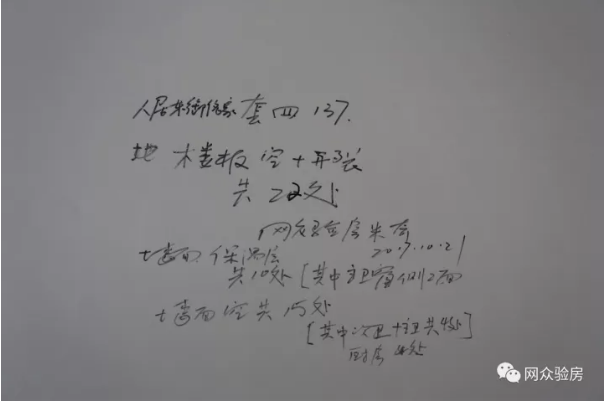 人居东御佲家 套四 137.
地 楼板 空+开裂
共 22处
网众验房 朱奇
2017.10.21
墙面 保温层
共10处 [其中主卫窗侧2面
墙面空共15处
[其中次卫+主卫共4处]
厨房 4处
网众验房